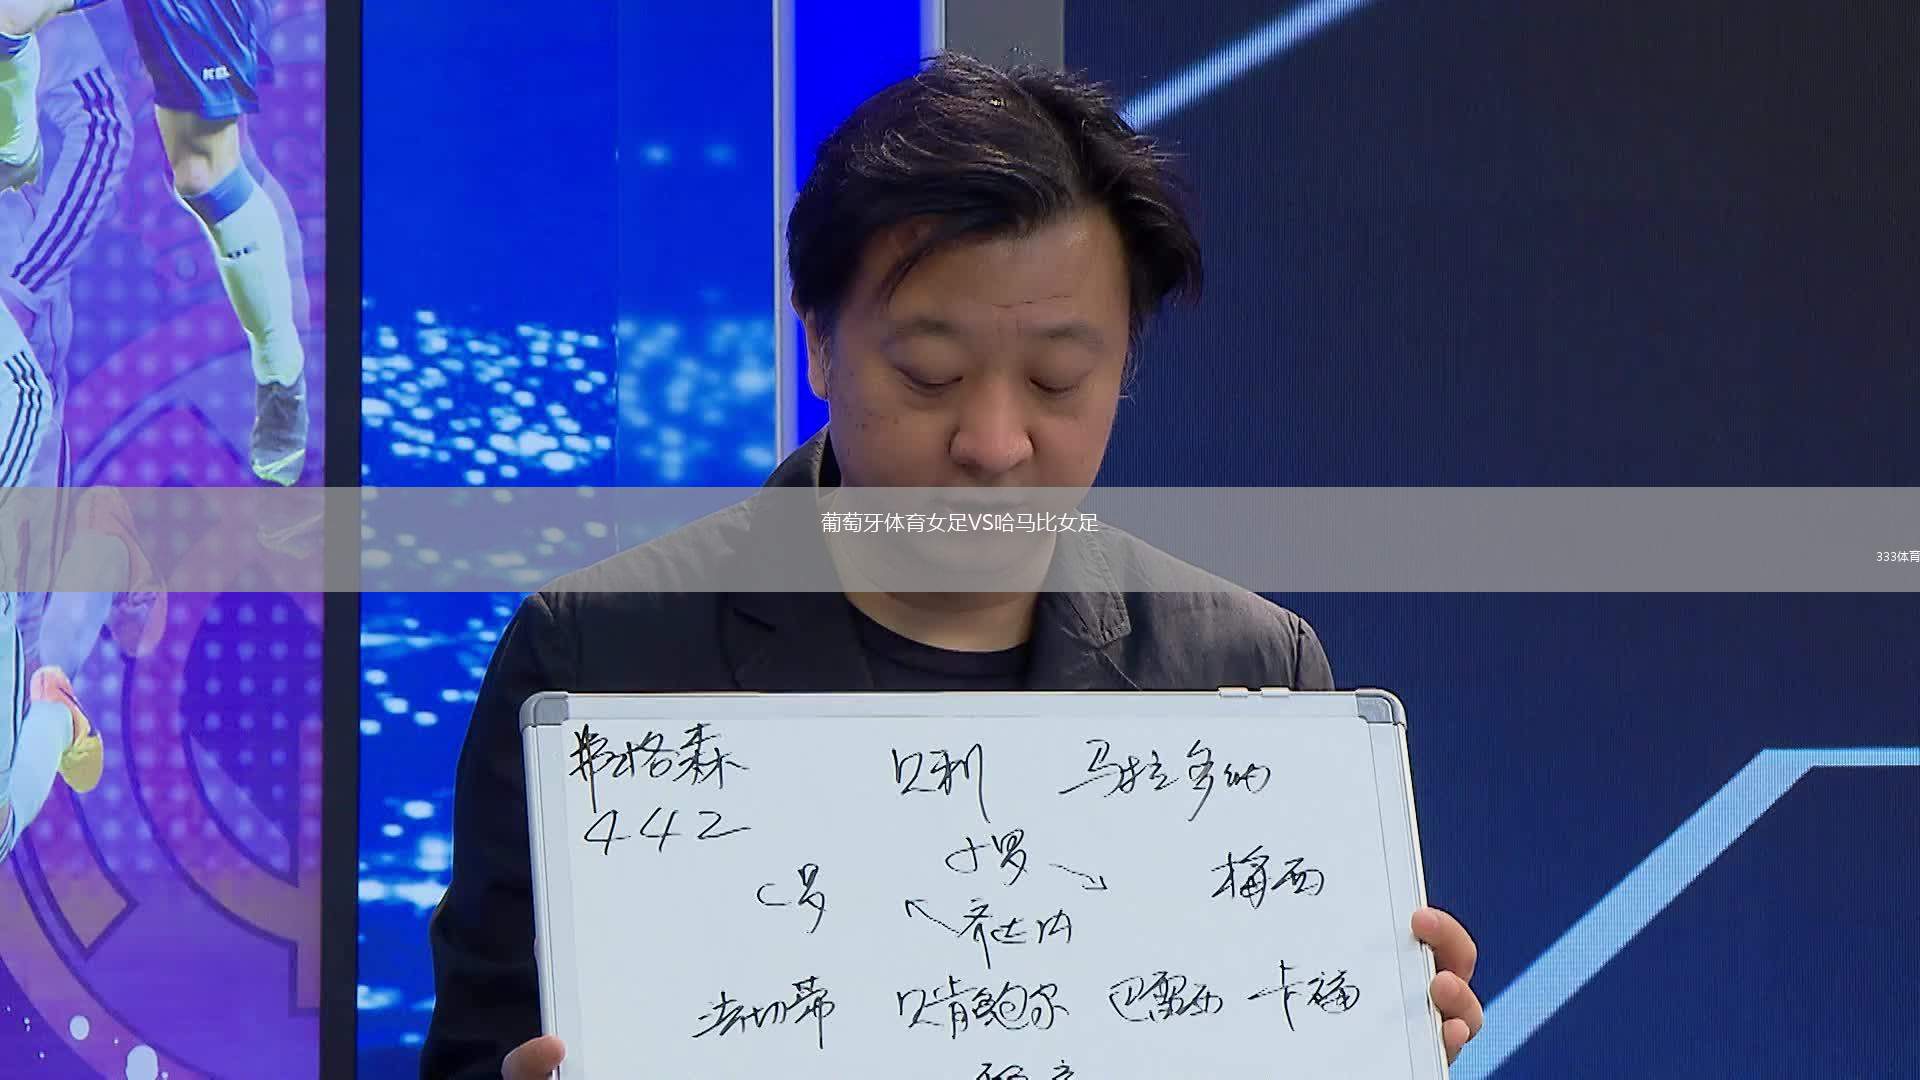 葡萄牙体育女足VS哈马比女足
333体育
弗格森 贝利 马拉多纳
442
小罗
C罗 梅西
齐达内
法切蒂 贝肯鲍尔 巴雷西 卡福